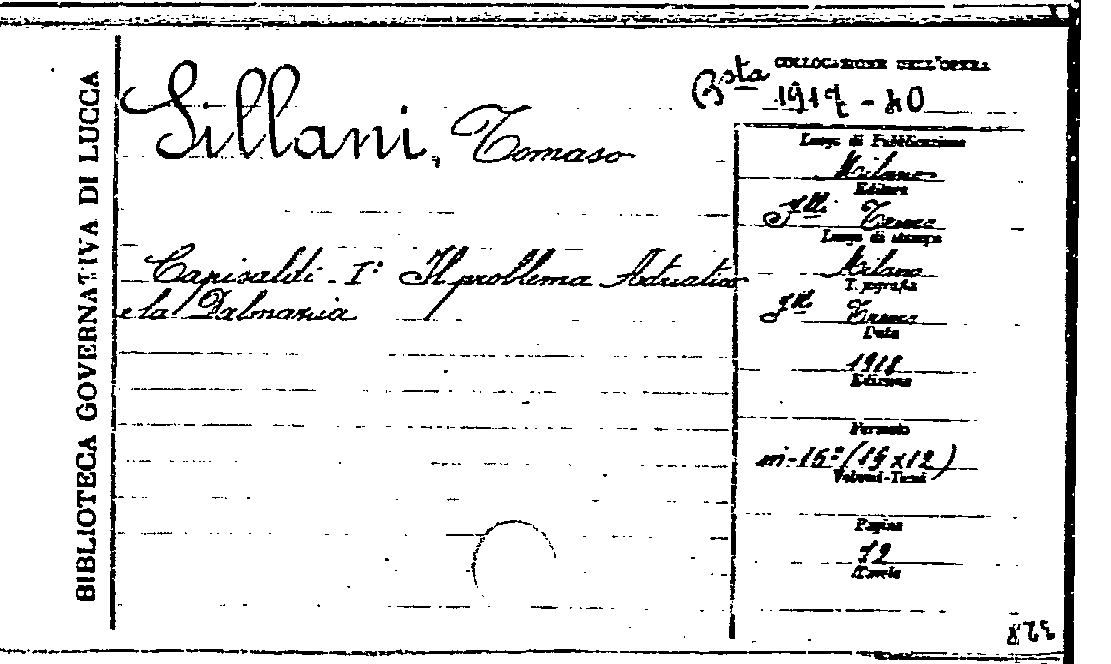 BIBLIOTECA GOVERNATIVA DI LUCCA
Sillani, Tomaso
Capisaldi - I° Il problema Adriatico
e la Dalmazia
COLLOCAZIONE DELL'OPERA
Bsta 1917 - 40
Luogo di Pubblicazione
Milano
Editore
F.lli Treves
Luogo di stampa
Milano
Tipografia
F.lli Treves
Data
1918
Edizione
Formato
in-16° (19x12)
Volumi-Tomi
Pagine
72
Tavole
328